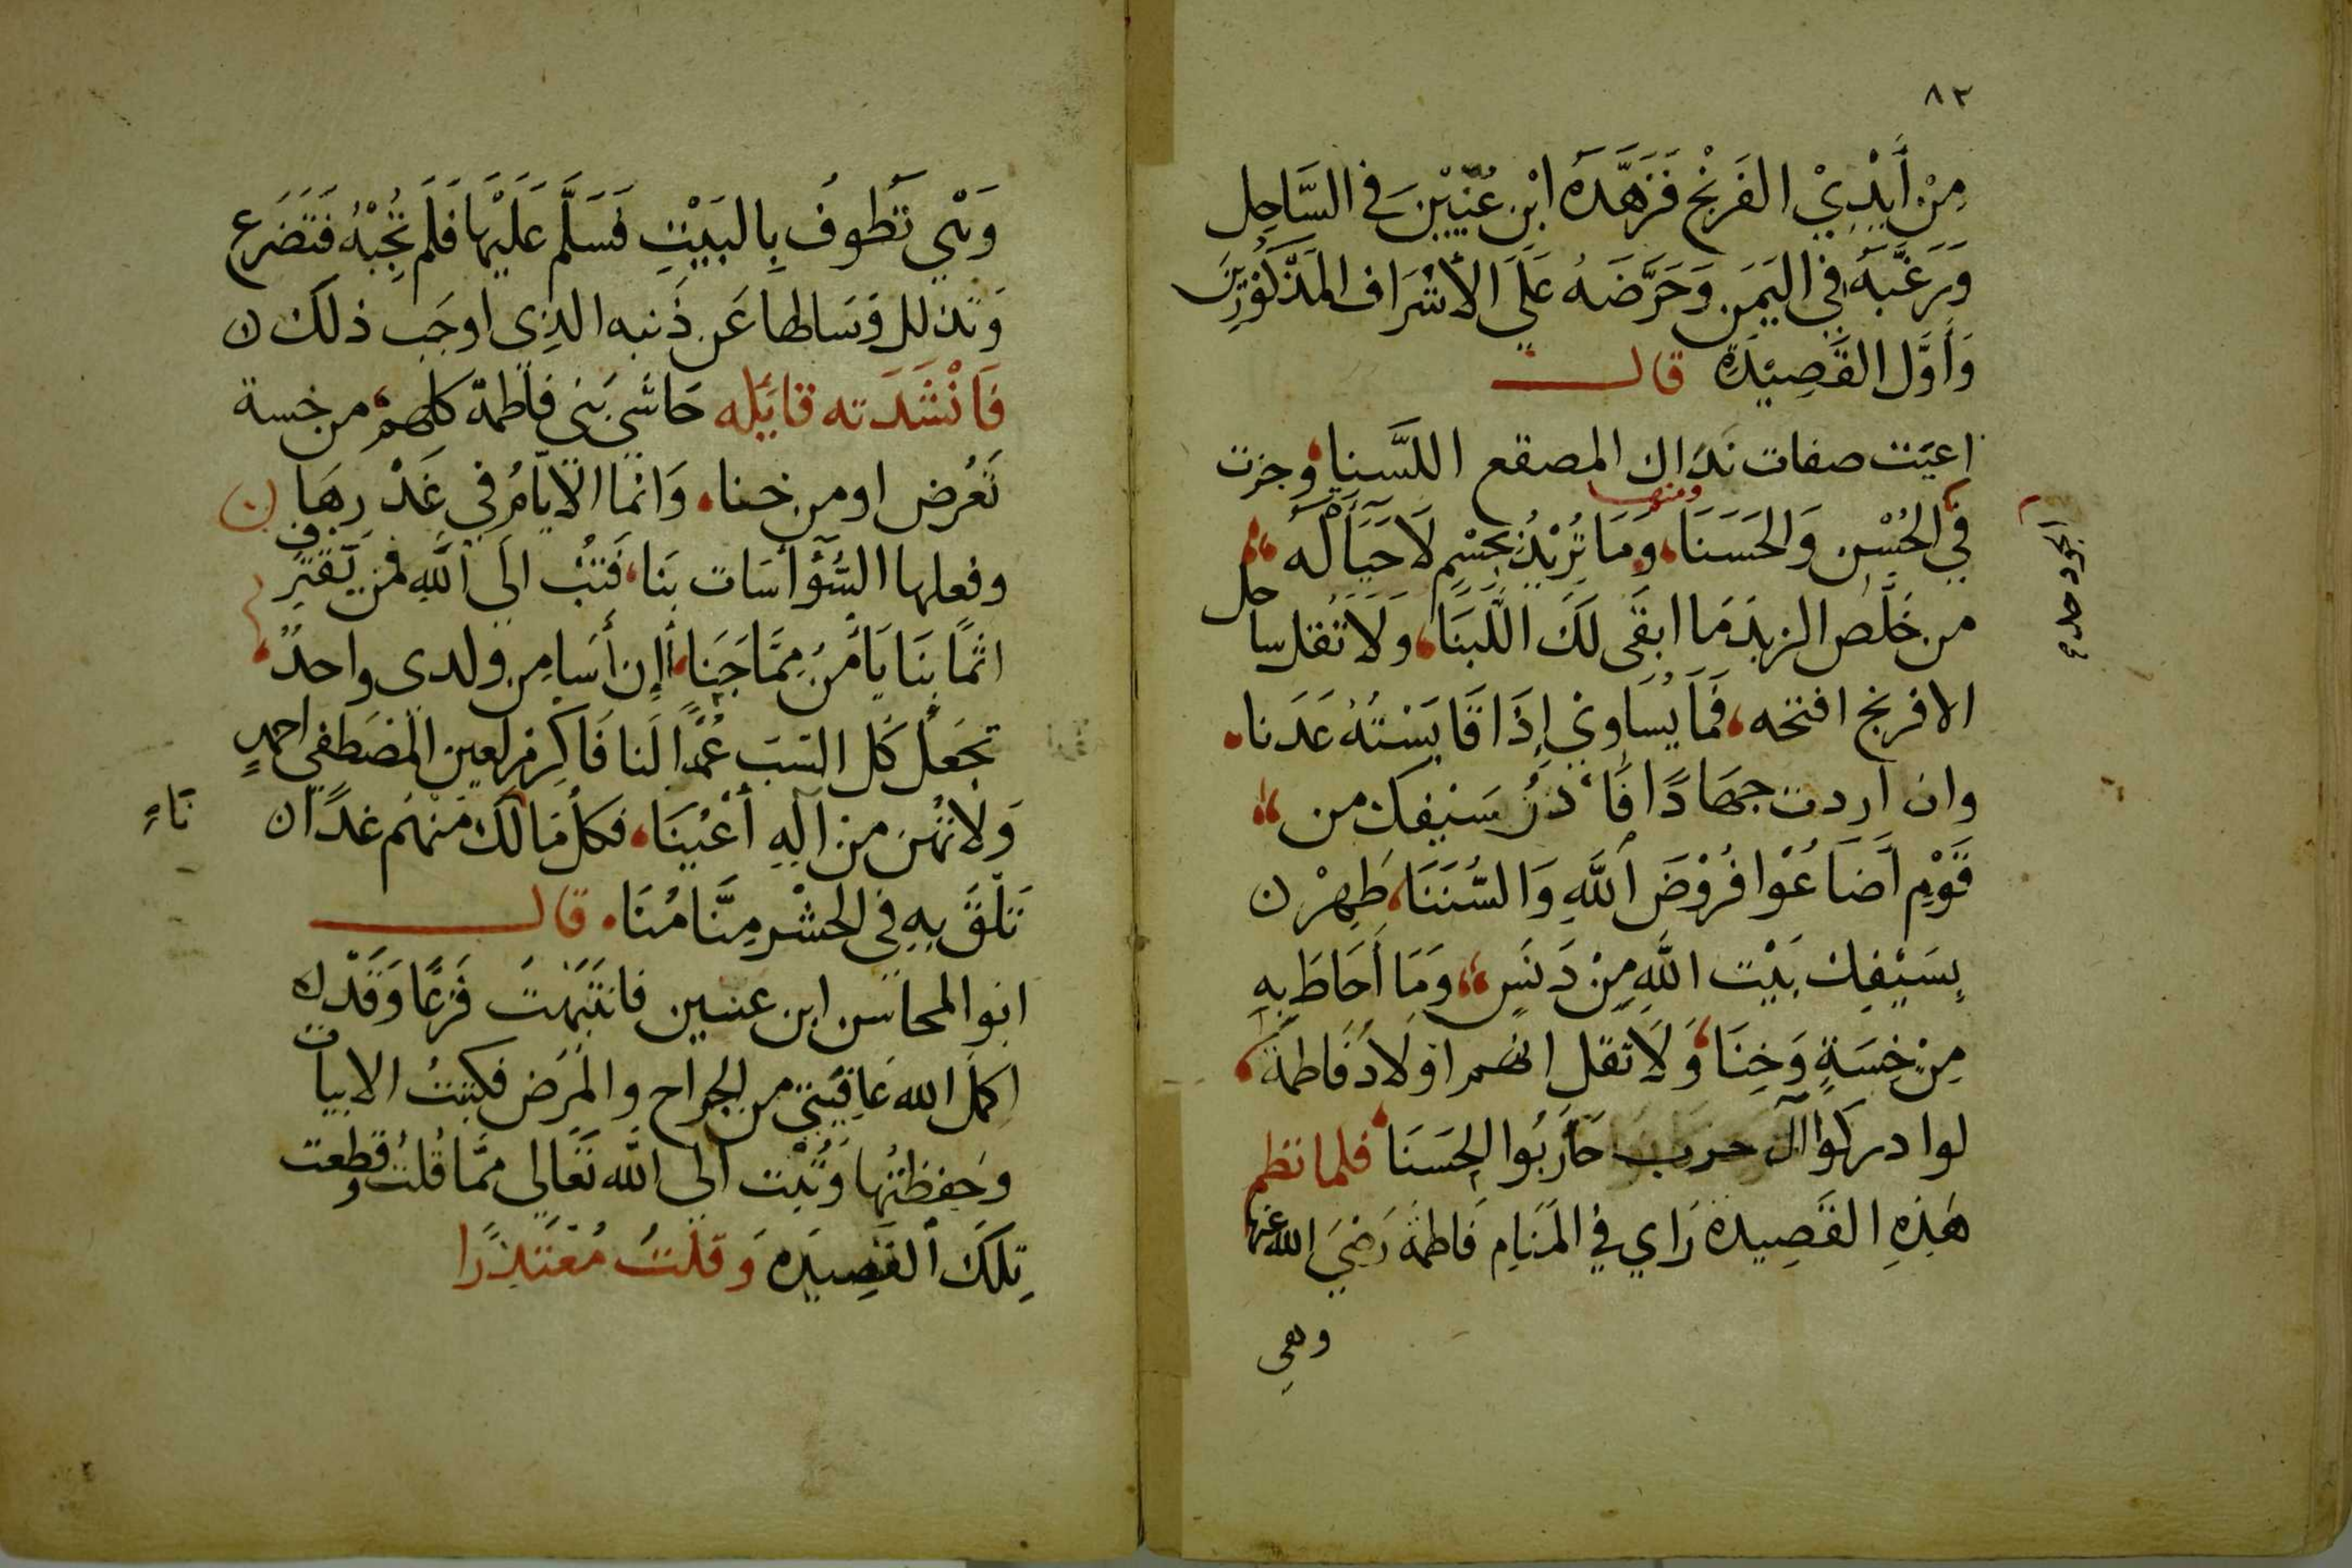 ٨٢
مِنْ أَيْدِيْ الفَرنْج فَزَهَّدَهُ ابْن عُنَيْن في السَّاحِل
وَرَغَّبَهُ في اليَمَن وَحَرَّضَهُ عَلَى الأشْرَاف المَذكُورِيْنَ
وَأَوَّل القَصِيْدَةِ قال
اعيَت صفات نَدَاك المصقع اللَّسنا وجزت
ومنها
في الحُسْن وَالحَسَنَا، وَمَا تُرِيْدُ بجِسْمٍ لَا حَيَاةَ لَهُ
من خَلَّص الزبدَ مَا ابقَى لَكَ اللَّبنَا، وَلَا تَقُل ساحل
الافرنج افتحه، فَمَا يُسَاوِي إِذَا قَايَسْتَهُ عَدَنا
وان اردت جهَادًا فَا دْنُ سَيْفك من
قَوْمٍ أَضَاعُوْا فُرُوْضَ اللَّهِ وَالسُّنَنَا، طَهِرْ ن
بِسَيْفِك بَيْت اللَّهِ مِنْ دَنَسٍ، وَمَا أَحَاطَ بِهِ
مِنْ خِسَةٍ وَخِنَا، وَلَا تقل انهم اوْلَادُ فَاطمةَ
لوا دركوا آل حرب حَارَبُوا الحَسَنَا فلما نظم
هَذِهِ القَصِيدة رَاي في المَنَامِ فَاطمَةَ رَضِيَ الله عنها
وهي
وَهْي تَطُوفُ بِالبَيْتِ فَسَلَّم عَلَيْهَا فَلَم تُجِبْهُ فَتَضَرَع
وَتذلل وَسَالها عَن ذَنبه الذِي اوجَب ذلكَ ن
فَانْشَدَته قايَله حَاشَى بَنِي فاطمة كلهم من خسة
تَعُرض او من خنا، وَانما الايّامُ في غَدْرِهَا ن
وفعلها السُّؤَأسَات بنَا، فَتُبْ الَى اللَّهِ فمن يَقْترِف
اثمًا بنَا يَأْمَنُ مِمَّا جَنَا، أَإن أسَا مِن ولدى واحدٌ
تجعَل كَل السَب عَمْدًا لَنا فَاكرِم لعين المُصَطفى احمدٍ
وَلا تهُن من آلِهِ أَعْيُنَا، فكل مَا لَكَ مِنْهُم غدًا ن
تَاءِ
تَلْقَ بِهِ في الحشْر مِنَّا مُنَا. قال
ابوا المحاسن ابن عنين فانتَبَهْتَ فَزِعًا وَقَدْ ن
اكمَل الله عَافِيَتي من الجراح والمَرَض فكتبتُ الابيات
وَحفظتُهَا وَتُبْت الى اللَّه تَعَالى ممَّا قُلتُ وقطعت
تِلكَ القَصِيدَه وَقلتُ مُعْتَذِرًا